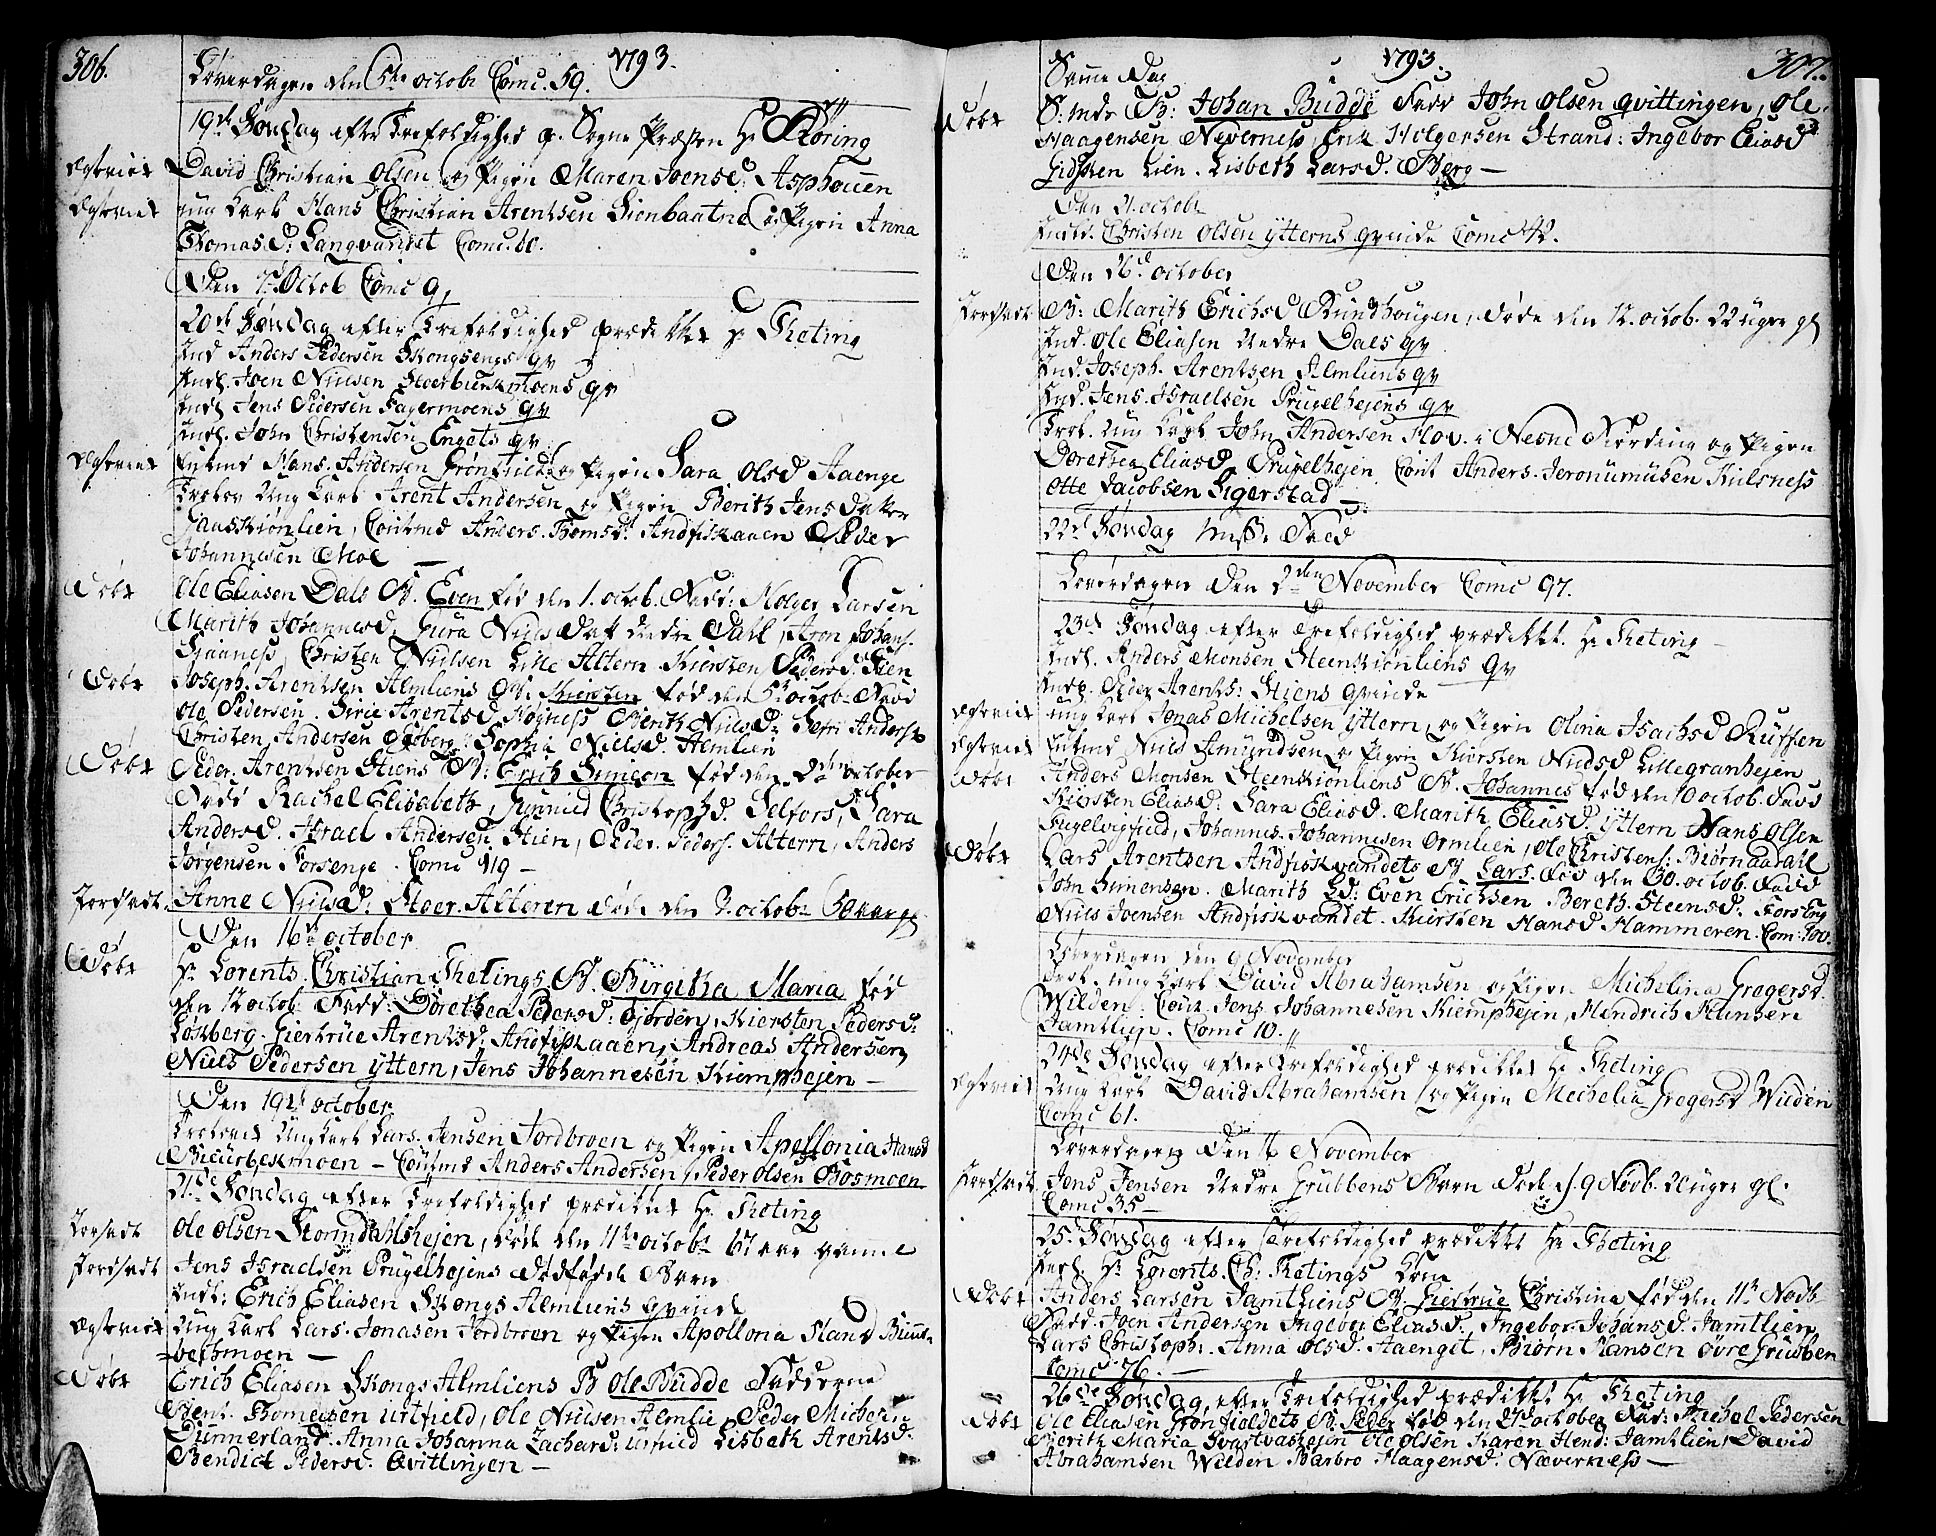 306. 1793.
Løverdagen den 5te octobr Comc. 59.
19de Søndag efter Trefoldighed p. Sogne Præsten Hr Röring
Egteviet David Christian Olsen og Pigen Maren Joensd: Asphouen
Egteviet ung Karl Hans Christian Arentsen og Pigen Anna
Thomasd: Langvandet Comc. 60.
Den 7de Octob Comc 9,
20de Søndag efter Trefoldighed prædikket Hr Theting
Ind Anders Pedersen Skongsengs qv
Indl. Joen Nielsen qv
Indl Jens Pedersen Fagermoens qv
Indl. John Christensen Engets qv
Egteviet Hans Andersen Grønfield og Pigen Sara Olsd Aaenge
Trolov Ung Karl Arent Andersen og Pigen Berith Jensd
Anders Andfiskaaen Peder
Johannesen Moe —
Døbt Ole Eliasen Dals B. Even fød den 1. octob. Fadd: Holger Larsen
Marith Johannesd, Gura Nielsdat Nedre Dahl, Aron Johans.
Sjaaness, Christen Nielsen Lille Altern Kiersten Pedersd Stien
Døbt Joseph Arentsen Almliens B. Kiersten fød den 5te octob. Fadd
Ole Pedersen. Sirie Arentsd. Høgness Berith Nielsd: Anders
Christen Andersen Sophia Nielsd. Almlien
Døbt Peder Arentsen Stiens B: Erich Simeon fød den 2den october
Fadd Rachel Elisabeth, Gunnild Christophd. Selfors, Sara
Andersd. Israel Andersen Stien, Peder Peders. Altern, Anders
Jørgensen Forsenge. Comc 119 —
Jordsadt. Anne Nielsd: Altern døde den 7. octob:
Den 16de october
Døbt Hr Lorents Christian Thetings B. Birgitha Maria fød
den 12 octob: Fadd: Dorethea Pedersd: Fjorden, Kiersten Pedersd:
Giertrüe Arentsd: Andfiskaaen, Andreas Andersen,
Niels Pedersen Yttern, Jens Johannesen Kiemphejen —
Den 19de october
Trolovet Ung Karl Lars Jensen Jordbroen og Pigen Apollonia Hansd
— Coutmd Anders Andersen, Peder Olsen Bosmoen
21de Søndag efter Trefoldighed prædiket Hr Theting
Jorsadt Ole Olsen Stormdahlshejen, døde den 11te octob 67 aar gamle
Jordsadt Jens Israelsen Prygelhejens dødfødde Barn
Indl: Erich Eliasen Skongs Almliens Qvinde
Egteviet Ung Karl Lars Jonasen Jordbroen og Pigen Apollona Hansd
—
Døbt Erich Eliasen Skongs Almliens B Ole Budde Fadderne
Bent Thomesen Urtfield, Ole Nielsen Almlie, Peder Michels
Anna Johanna Zachard: Urtfield Lisbeth Arentsd:
Bendict Pedersd. Qvittingen —
1793. 307.
Samme Dag
Døbt B: Johan Budde Fadd John Olsen Qvittingen, Ole
Haagensen Neverness, Erik Holgersen Strand: Ingebor Eliasd
Gidsken Lien. Lisbeth Larsd. Berg —
Den 21 octobr
Indl. Christen Olsen Ytterns Qvinde Comc 42.
Den 26d october
Jordsadt B: Marith Erichsd Rundhougen, døde den 12. octob. 22 uger gl
Ind. Ole Eliasen Nedre Dals qv
Ind. Joseph Arentsen Almliens qv
Ind. Jens Israelsen Prygelhejens qv
Trol. Ung Karl John Andersen Hov i Nesne og Pigen
Dorethea Eliasd Prygelhejen Cout Anders Jeronumusen Hulsness
Otte Jacobsen Sigerstad —
22de Søndag Messe Fald
Løverdagen Den 2den November Comc 97.
23de Søndag efter Trefoldighed prædikket Hr Theting —
Indl. Anders Monsen Steenkionliens qv
Indl. Peder Arents: Stiens Qvinde
Egteviet ung Karl Jonas Michelsen Yttern og Pigen Olina Isachsd
Egteviet Niels Amundsen og Pigen Kiersten Nielsd Lillegranhejen
Døbt Anders Monsen Steenkionliens B. Johannes fød den 10 octob. Fadd
Kiersten Eliasd: Sara Eliasd. Marith Eliasd Yttern Hans Olsen
Fugelvigfield, Johannes Johannesen Ormlien, Ole Christens: Biørnaadahl
Døbt Lars Arentsen Andfiskvandets B Lars. Fød den 30. octob. Fadd
John Simensen. Marith Ld: Even Erichsen Bereth Steensd: Forseng
Niels Joensen Andfiskvandet. Kiersten Hansd. Hammeren. Com: 300.
Løverdagen den 9 November
Trol. ung Karl David Abrahamsen og Pigen Michelina Gregersd.
Wilden: Cout. Jens Johannesen Kiemphejen, Hendrich
Jamtlien. Comc 10.
24de Søndag efter Trefoldighed prædikket Hr Theting
Egteviet Ung Karl David Abrahamsen og Pigen Mechelia Gregersd Wilden
Comc 61.
Løverdagen Den 16 November
Jordsadt Jens Jensen Nedre Grubbens Barn døde d. 9 Novb. uger gl.
Comc 35 —
25de Søndag efter Trefoldighed prædikket Hr Theting
Hr Lorents Ch: Thetings Kone
Døbt Anders Larsen Jamtliens B Giertrue Christina fød den 11te Novb
Fadd. Joen Andersen Ingebor Eliasd: Ingebor Johansd. Jamtlien
Lars Christoph: Anna Olsd. Aaenget, Biørn Hansen Øvre Grubben
Comc 76. —
26de Søndag efter Trefoldighed prædikket Hr Theting
Døbt Ole Eliasen Grønfieldets B: Peder fød den october Fad: Michel Pedersen
Berith Maria Ole Olsen Karen Hend: Jamtlien, David
Abrahamsen Wilden Barbro Haagensd: Næverness —